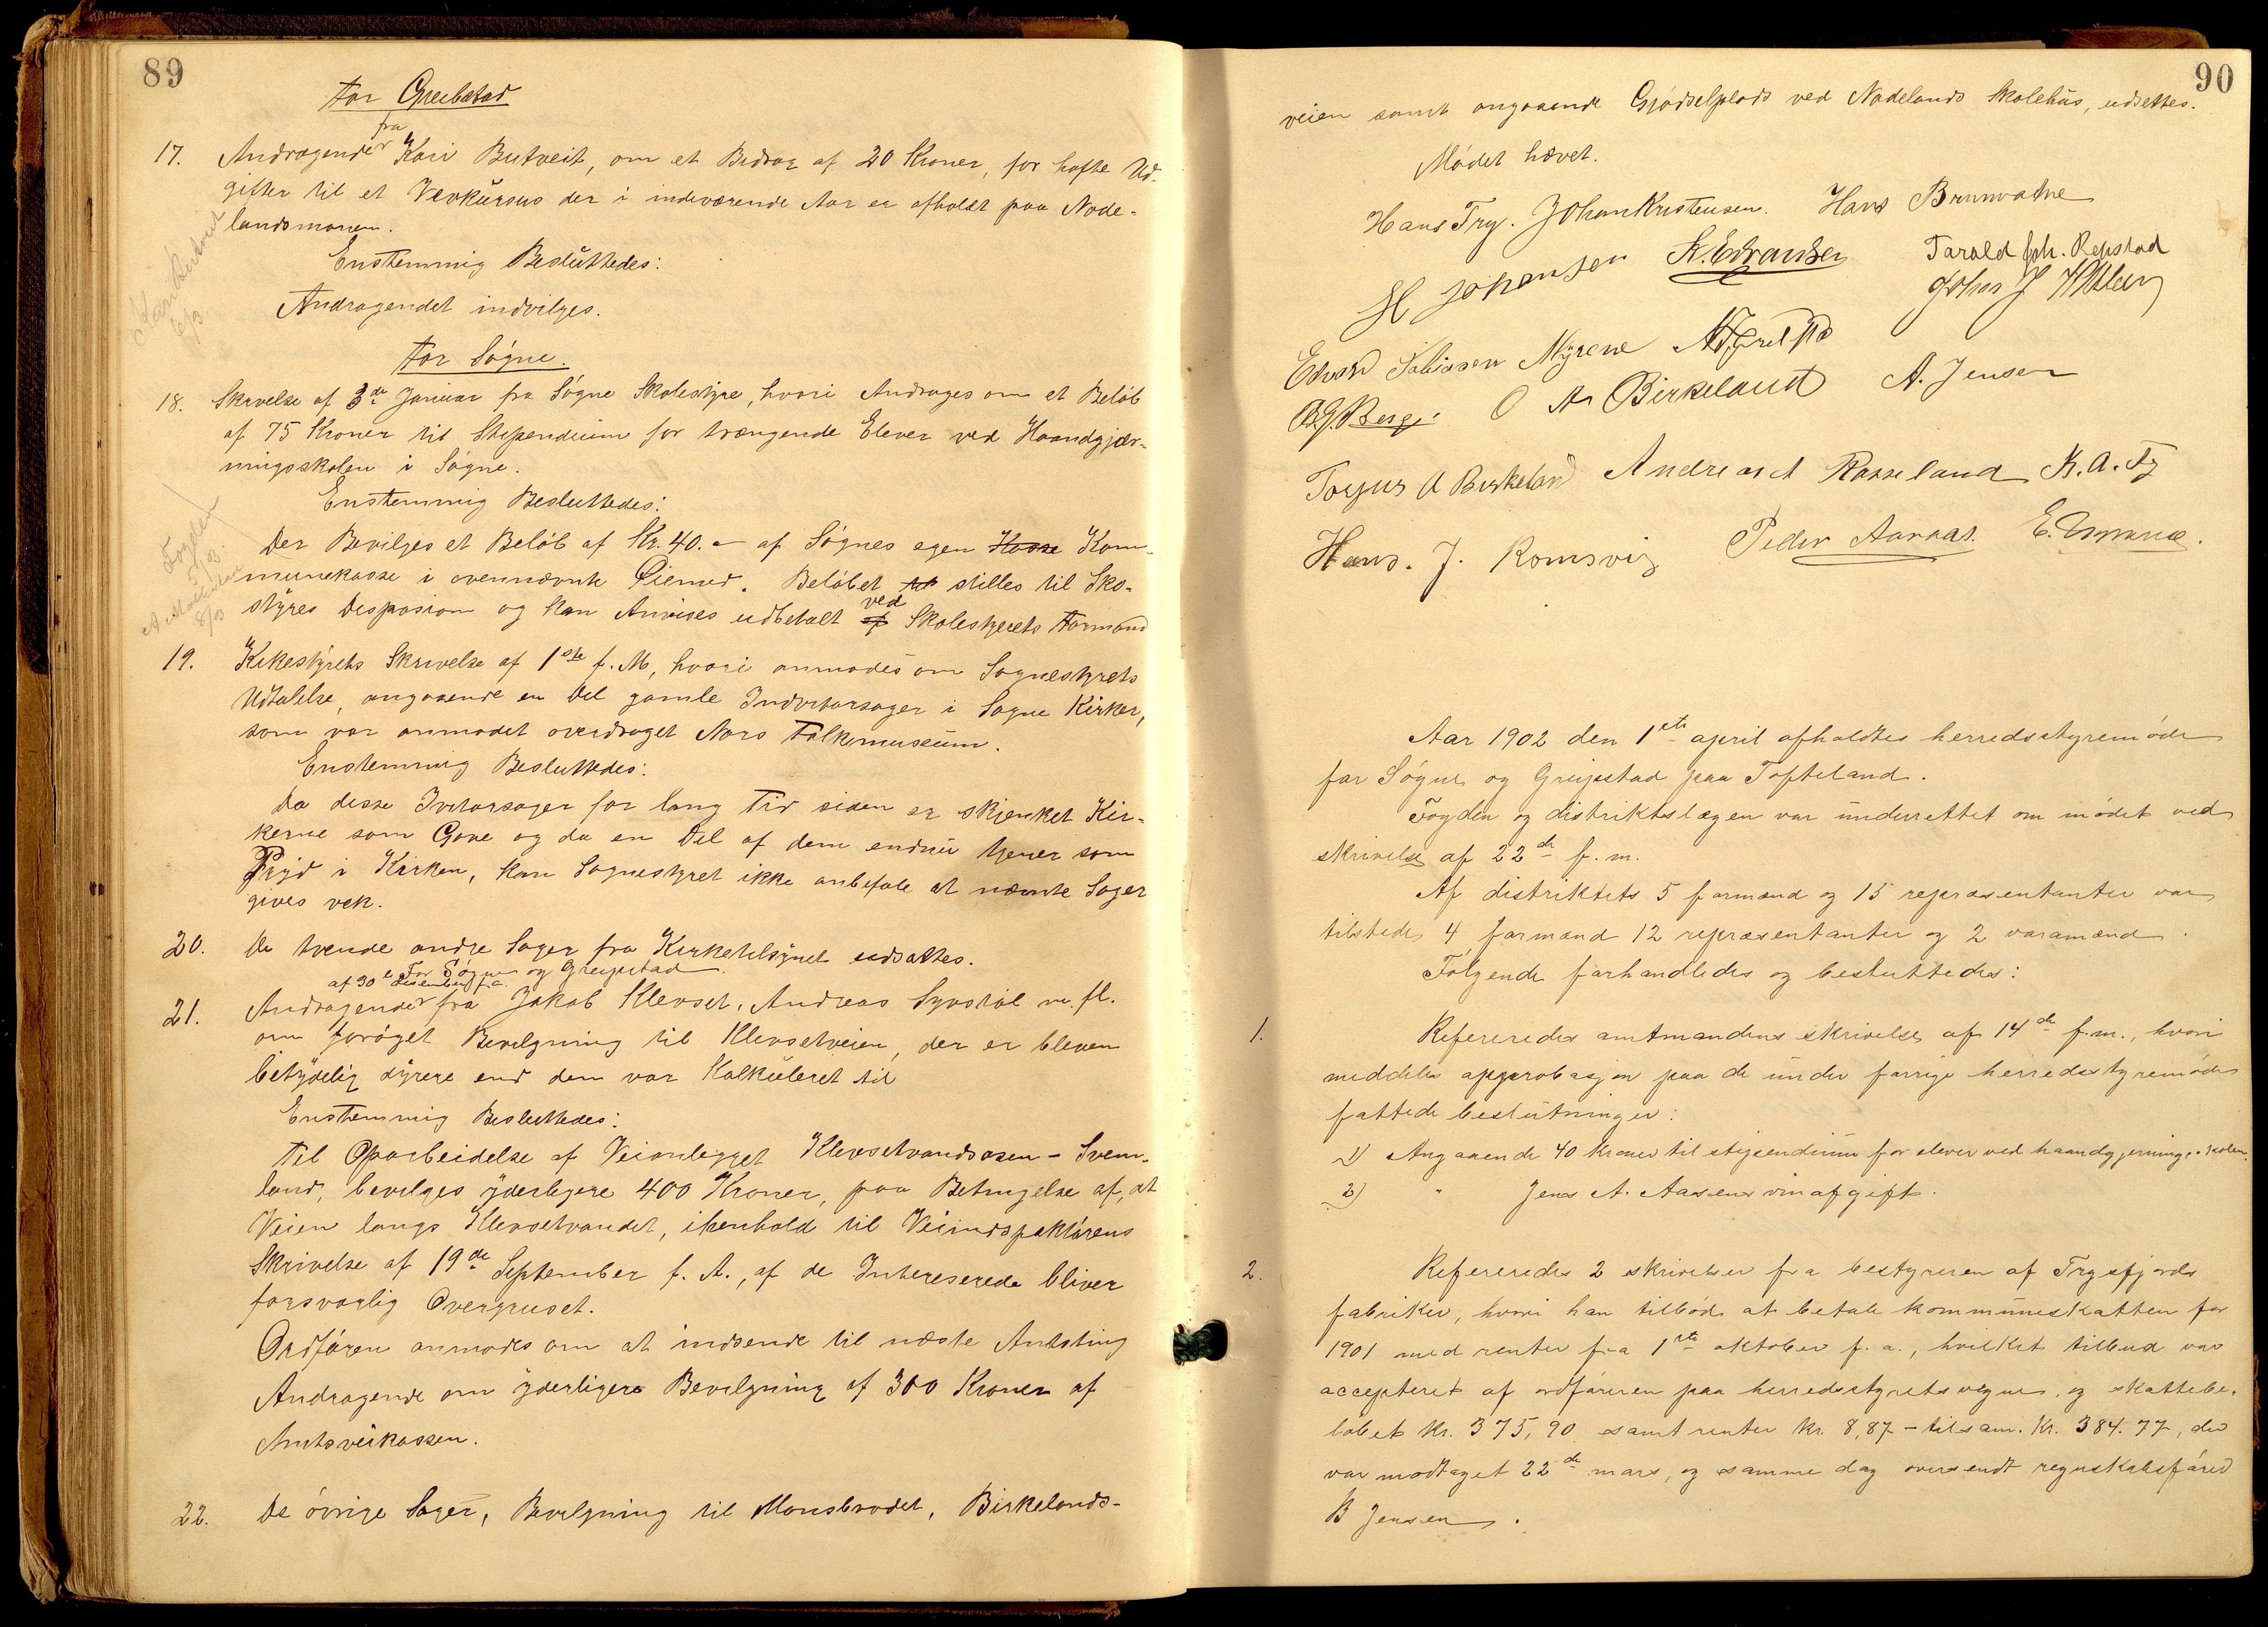 89
For Greibstad
17. Andragende fra Kari Butveit, om et Bidrag af 20 Kroner, for hafte Ud-
gifter til et Vevkursus der i indeværende Aar er afholdt paa Node-
landsmonen.
Enstemmig Besluttedes:
Andragendet indvilges.
Kari Butveit
6/3
For Søgne.
18. Skrivelse af 3de Januar fra Søgne Skolestyre, hvori Andrages om et Beløb
af 75 Kroner til Stipendium for trængende Elever ved Haandgjær-
ningsskolen i Søgne.
Enstemmig Besluttedes:
Der Bevilges et Beløb af Kr. 40.- af Søgnes egen Kasse Kom-
munekasse i ovennævnte Øiemed. Beløbet til stilles til Sko-
styres Disposion og kan Anvises udbetalt af ved Skolestyrets Formand
Fogden
8/3
19. Kirkestyrets Skrivelse af 1ste f. M, hvori anmodes om Sognestyrets
Udtalelse, angaaende en Del gamle Indvetarsager i Søgne Kirker,
som var anmodet overdraget Nors Folkmuseum.
Enstemmig Besluttedes:
Da disse Ivetarsager for lang Tid siden er skjenket Kir-
kerne som Gave og da en Del af dem endnu tjener som
Pryd i Kirken, kan Sognestyret ikke anbefale at nævnte Sager
gives vek.
20. De tvende andre Sager fra Kirketilsynet udsattes.
For Søgne og Greipstad.
af 30te desember f.a.
21. Andragende fra Jakob Klevset, Andreas Syvstøl m. fl.
om forøget Bevilgning til Klevsetveien, der er bleven
betydelig dyrere end den var Kalkuleret til
Enstemmig Besluttedes:
Til Oparbeidelse af Veianlegget Klevsetvandsosen - Svem-
land, bevilges yderligere 400 Kroner, paa Betingelse af, at
Veien langs Klevsetvandet, ihenhold til Veiindspektørens
Skrivelse af 19de September f. A., af de Intereserede bliver
forsvarlig Overgruset.
Ordføren anmodes om at indsende til næste Amtsting
Andragende om yderligere Bevilgning af 300 Kroner af
Amtsveikassen.
22. De øvrige Sager, Bevilgning til Monsbrodet, Birkelands-
90
veien samt angaaende Gjødselplads ved Nodelands Skolehus, udsettes.
Mødet hævet.
Hans Try. Johan Kristensen. Hans Brunvatne
H Johansen K. Edvardsen Tarald Joh. Repstad
Johan J
Edvard Tobiassen Myrene
B. J. Berge O A Birkeland A. Jensen
Torjus A Birkeland Andreas A Rosseland K. A. Try
Hans. J. Romsvig Peder Aaraas.
Aar 1902 den 1ste april afholdtes herredsstyremøde
for Søgne og Greipstad paa Tofteland.
Fogden og distriktslægen var underrettet om mødet ved
skrivelse af 22de f. m.
Af distriktets 5 formænd og 15 repræsentanter var
tilstede 4 formænd 12 repræsentanter og 2 varamænd.
Følgende forhandledes og besluttedes:
1. Refereredes amtmandens skrivelse af 14de f.m., hvori
meddeles approbasjon paa de under forrige herredsstyremøde
fattede beslutninger:
1) Angaaende 40 kroner til stipendium for elever ved haandgjerningsskolen.
2) " Jens A. Aasens vinafgift.
2. Refereredes 2 skrivelser fra bestyreren af Trysfjords
fabriker, hvori han tilbød at betale kommuneskatten for
1901 med renter fra 1ste oktober f. a., hvilket tilbud var
accepteret af ordføreren paa herredsstyrets vegne, og skattebe-
løbet kr. 375,90 samt renter kr. 8,87 - tilsam. Kr. 384.77, der
var modtaget 22de mars, og samme dag oversendt regnskabsfører
B Jensen.